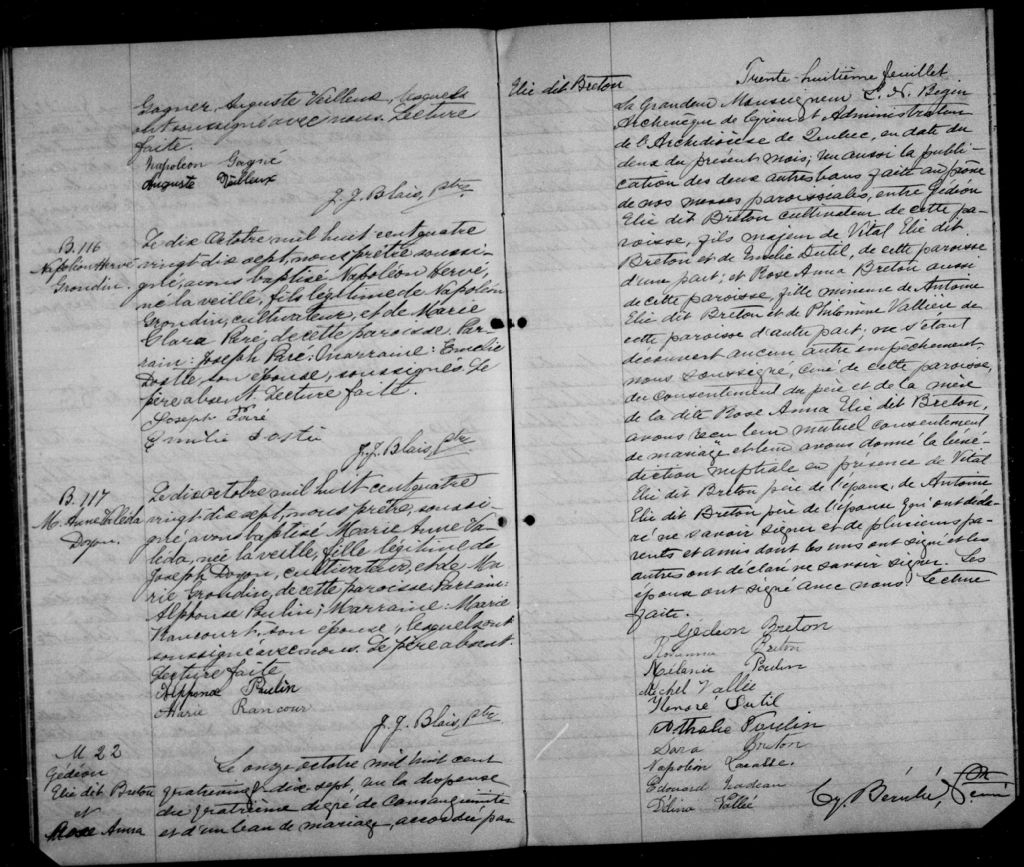 Gagner, Auguste Veilleux, lesquels
ont soussigné avec nous. Lecture
faite.
Napoléon Gagné
Auguste Veilleux
J. J. Blais, Ptre
B. 116
Napoléon Hervé
Grondin.
Le dix Octobre mil huit cent quatre
vingt dix sept, nous prêtre soussi-
gné, avons baptisé Napoléon Hervé,
né la veille, fils légitime de Napoléon
Grondin, cultivateur, et de Marie
Clara Paré, de cette paroisse. Par-
rain: Joseph Paré: Marraine: Emelie
son épouse, soussignés. Le
père absent. Lecture faite.
Joseph Paré
Emilie
J. J. Blais, Ptre
B. 117
M. Anne Valéda
Doyon.
Le dix octobre mil huit cent quatre
vingt-dix sept, nous prêtre, soussi-
gné, avons baptisé Marie Anne Va-
léda, née la veille, fille légitime de
Joseph Doyon, cultivateur, et de Ma-
rie Grondin, de cette paroisse. Parrain:
Alphonse Poulin; Marraine: Marie
Rancourt, son épouse, lesquels ont
soussigné avec nous. Le père absent.
Lecture faite
Alphonse Poulin
Marie Rancour
J. J. Blais, Ptre
M 22
Gédéon
Elie dit Breton
et
Rose Anna
Le onze octobre mil huit cent
quatrevingt dix sept, vu la dispense
du quatrième dégré de consanguinité
et d'un ban de mariage, accordée par
Elie dit Breton
Trente-huitième feuillet
Sa Grandeur Monseigneur L. N. Bégin
Archevêque de Cyrène et Administrateur
de l'Archidiocèse de Québec, en date du
deux du présent mois; Vu aussi la publi-
cation des deux autres bans faite au prône
de nos messes paroissiales, entre Gédéon
Elie dit Breton cultivateur de cette pa-
roisse, fils majeur de Vital Elie dit
Breton et de Emélie Dutil, de cette paroisse
d'une part; et Rose Anna Breton aussi
de cette paroisse, fille mineure de Antoine
Elie dit Breton et de Philomène Vallière de
cette paroisse d'autre part; ne s'étant
découvert aucun autre empêchement,
nous soussigné, curé de cette paroisse,
du consentement du père et de la mère
de la dite Rose Anna Elie dit Breton,
avons reçu leur mutuel consentement
de mariage et leur avons donné la béné-
diction nuptiale en présence de Vital
Elie dit Breton père de l'époux, de Antoine
Elie dit Breton père de l'épouse qui ont décla-
ré ne savoir signer et de plusieurs pa-
rents et amis dont les uns ont signé et les
autres ont déclaré ne savoir signer. Les
époux ont signé avec nous Lecture
faite.
Gédéon Breton
Rosanna Breton
Mélanie Poulin
Michel Vallée
Honoré Dutil
Nathalie Poulin
Dora Breton
Napoléon Lacasse.
Edouard Nadeau
Délina Vallée